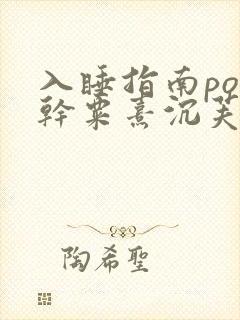 入睡指南po
幹粟熹沉芙
陶希聖